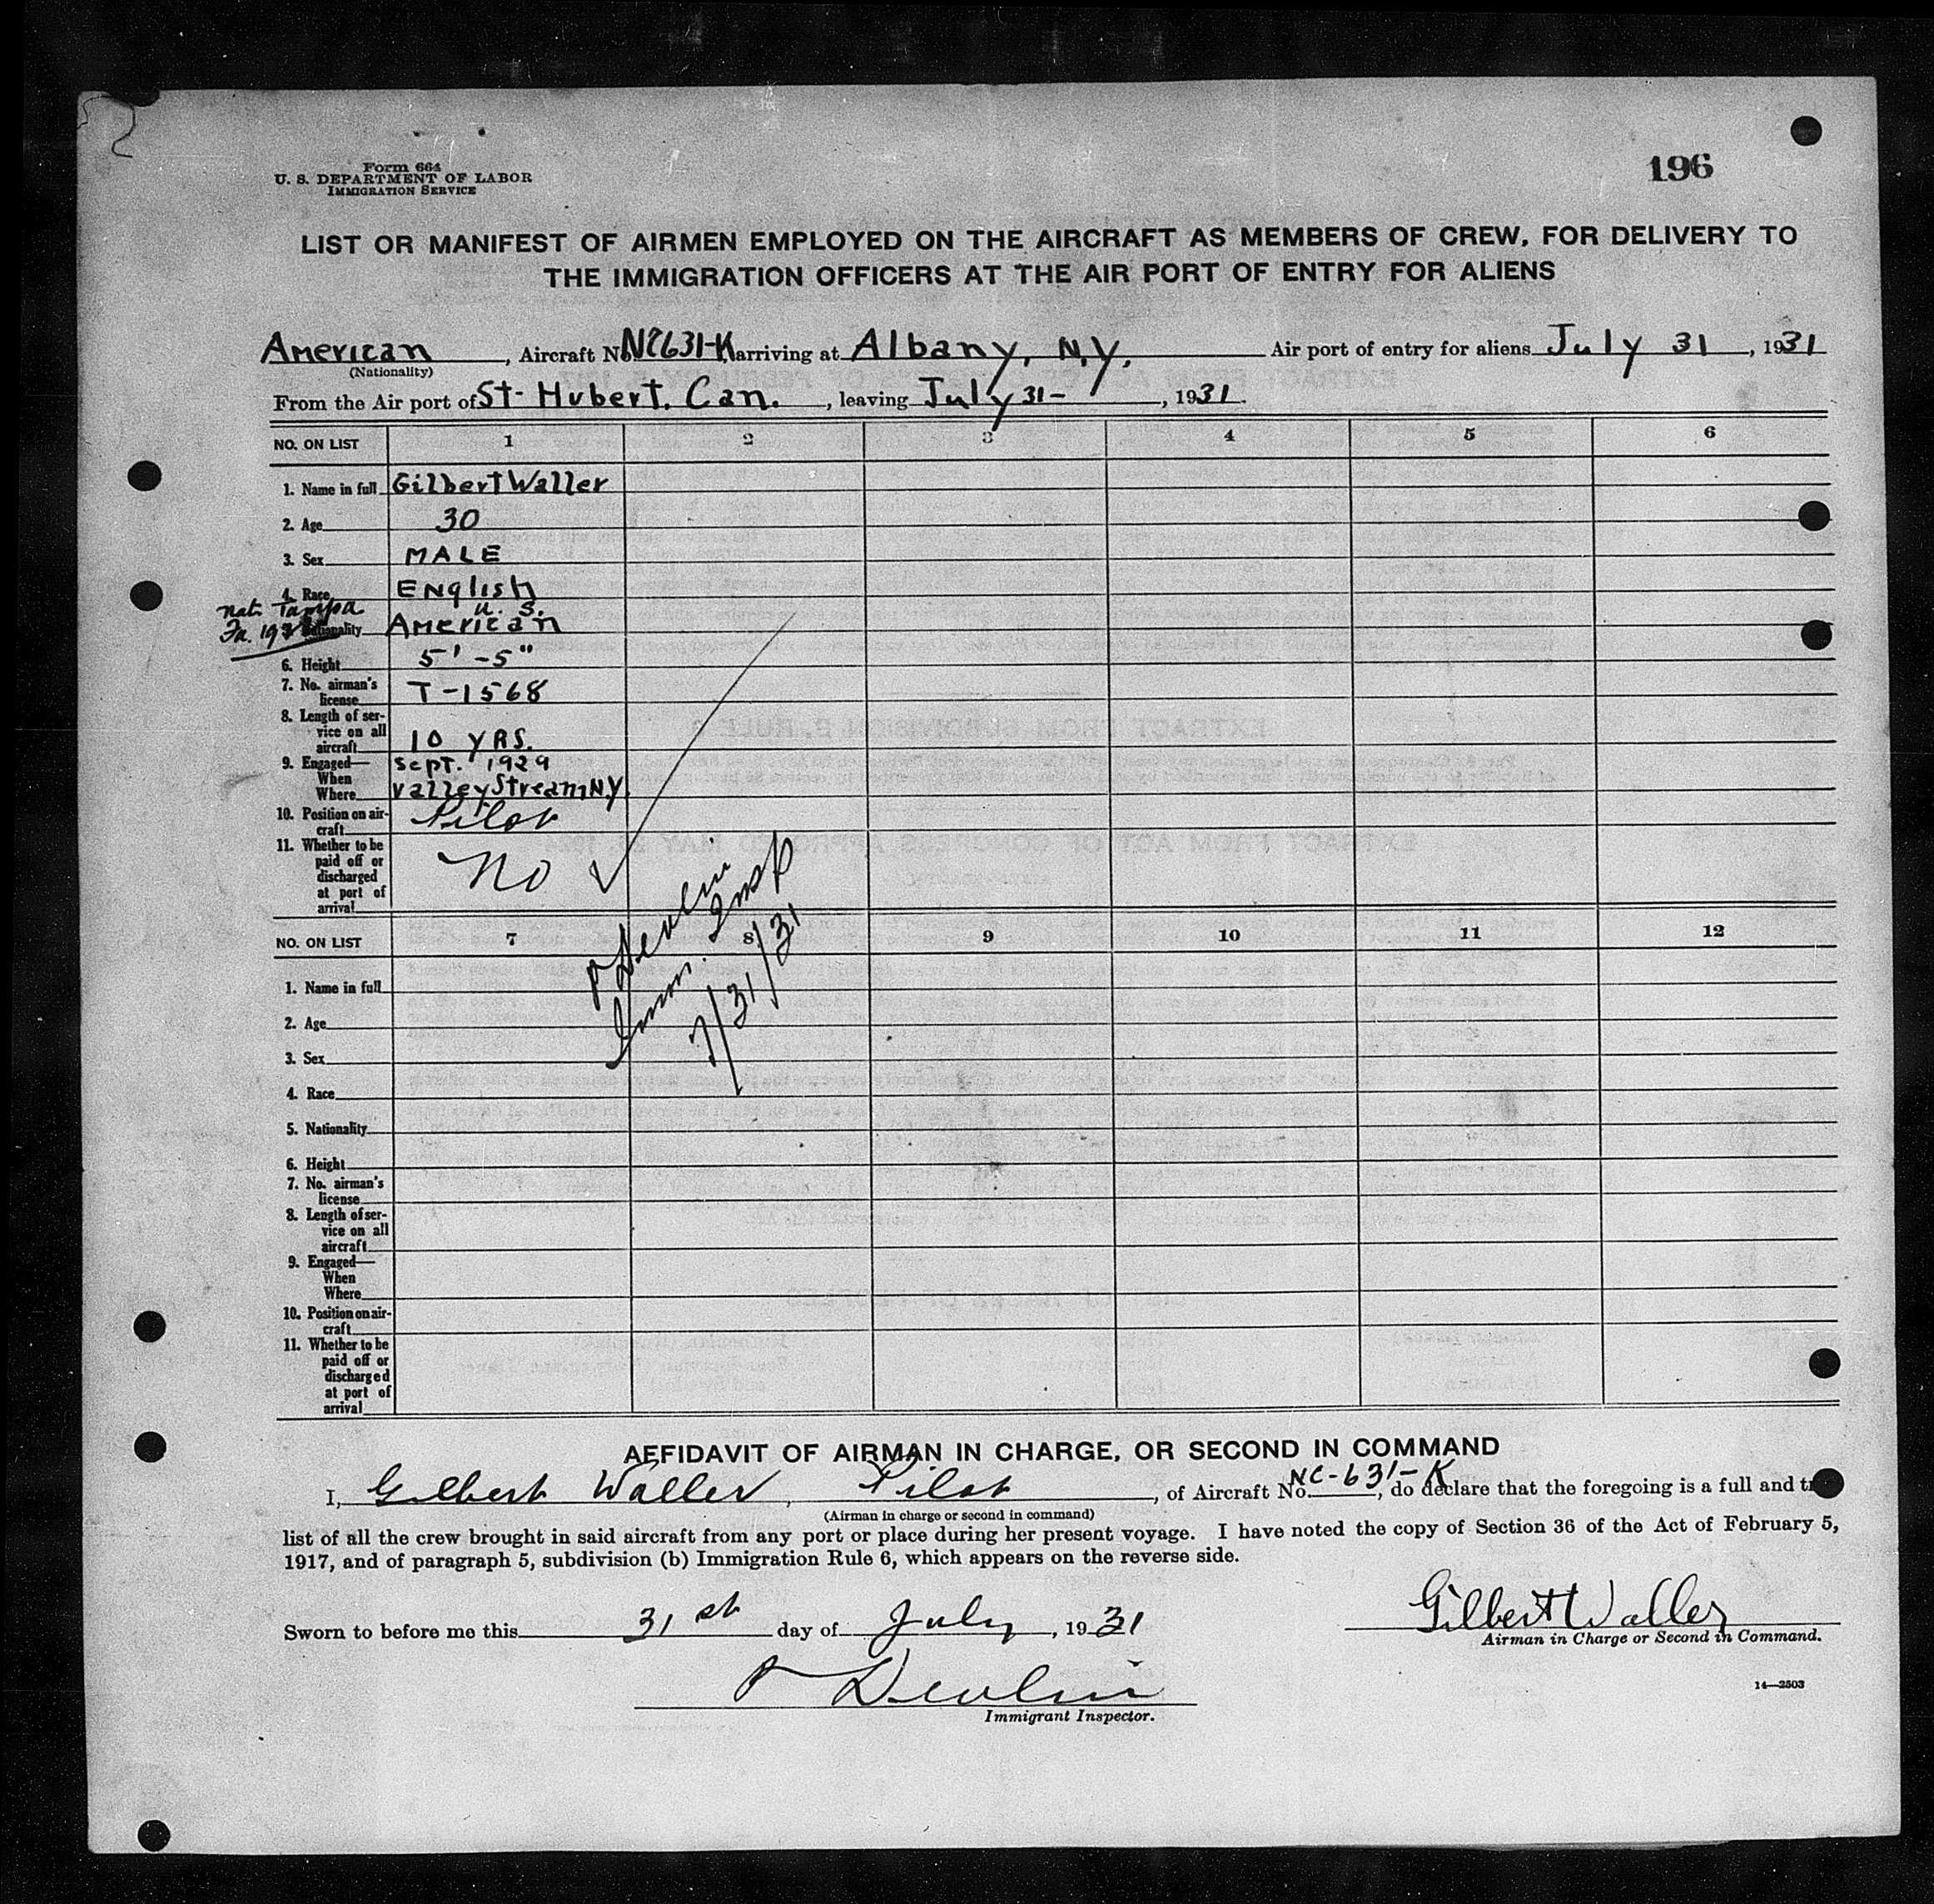 196
Form 664
U. S. DEPARTMENT OF LABOR
IMMIGRATION SERVICE
LIST OR MANIFEST OF AIRMEN EMPLOYED ON THE AIRCRAFT AS MEMBERS OF CREW, FOR DELIVERY TO
THE IMMIGRATION OFFICERS AT THE AIR PORT OF ENTRY FOR ALIENS
American, Aircraft No. NC631-K arriving at Albany, N.Y. Air port of entry for aliens July 31, 1931
(Nationality)
From the Air port of St. Hubert, Can., leaving July 31-, 1931.
NO. ON LIST 1 2 3 4 5 6
1. Name in full Gilbert Waller
2. Age 30
3. Sex MALE
4. Race English
nat. Tampa
u. s.
Fa. Nationality American
6. Height 5'-5"
7. No. airman's
license T-1568
8. Length of ser-
vice on all
aircraft 10 YRS.
9. Engaged— Sept. 1929
When
Where Valley Stream NY
10. Position on air-
craft Pilot
11. Whether to be
paid off or
discharged
at port of
arrival No
P Devlin
Imm. Insp
7/31/31
NO. ON LIST 7 8 9 10 11 12
1. Name in full
2. Age
3. Sex
4. Race
5. Nationality
6. Height
7. No. airman's
license
8. Length of ser-
vice on all
aircraft
9. Engaged—
When
Where
10. Position on air-
craft
11. Whether to be
paid off or
discharged
at port of
arrival
AFFIDAVIT OF AIRMAN IN CHARGE, OR SECOND IN COMMAND
I, Gilbert Waller, Pilot, of Aircraft No. NC-631-K, do declare that the foregoing is a full and
(Airman in charge or second in command)
list of all the crew brought in said aircraft from any port or place during her present voyage. I have noted the copy of Section 36 of the Act of February 5,
1917, and of paragraph 5, subdivision (b) Immigration Rule 6, which appears on the reverse side.
Gilbert Waller
Airman in Charge or Second in Command.
Sworn to before me this 31st day of July, 1931
P Devlin
Immigrant Inspector.
14—2503